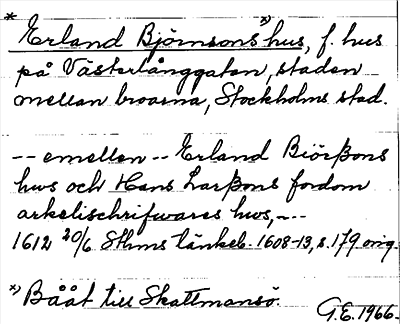 * Erland Björnsons *) hus, f. hus
på Västerlånggatan, staden
mellan broarna, Stockholms stad.
-- emellen -- Erland Biörßons
hws och Hans Larßons fordom
arkelischrifwares hws, --
1612 20/6 Sthms tänkeb. 1608-13, s. 179 orig.
*) Bååt till Skattmansö.
G.E. 1966.